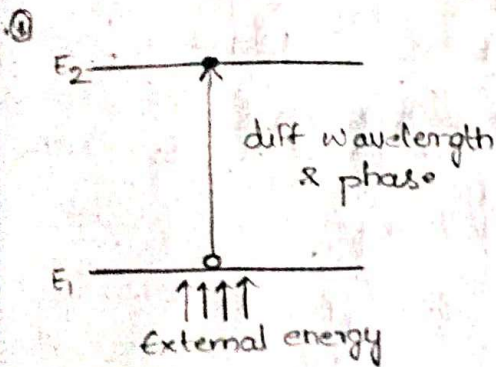 ①
E2
diff wavelength
& phase
E1
External energy